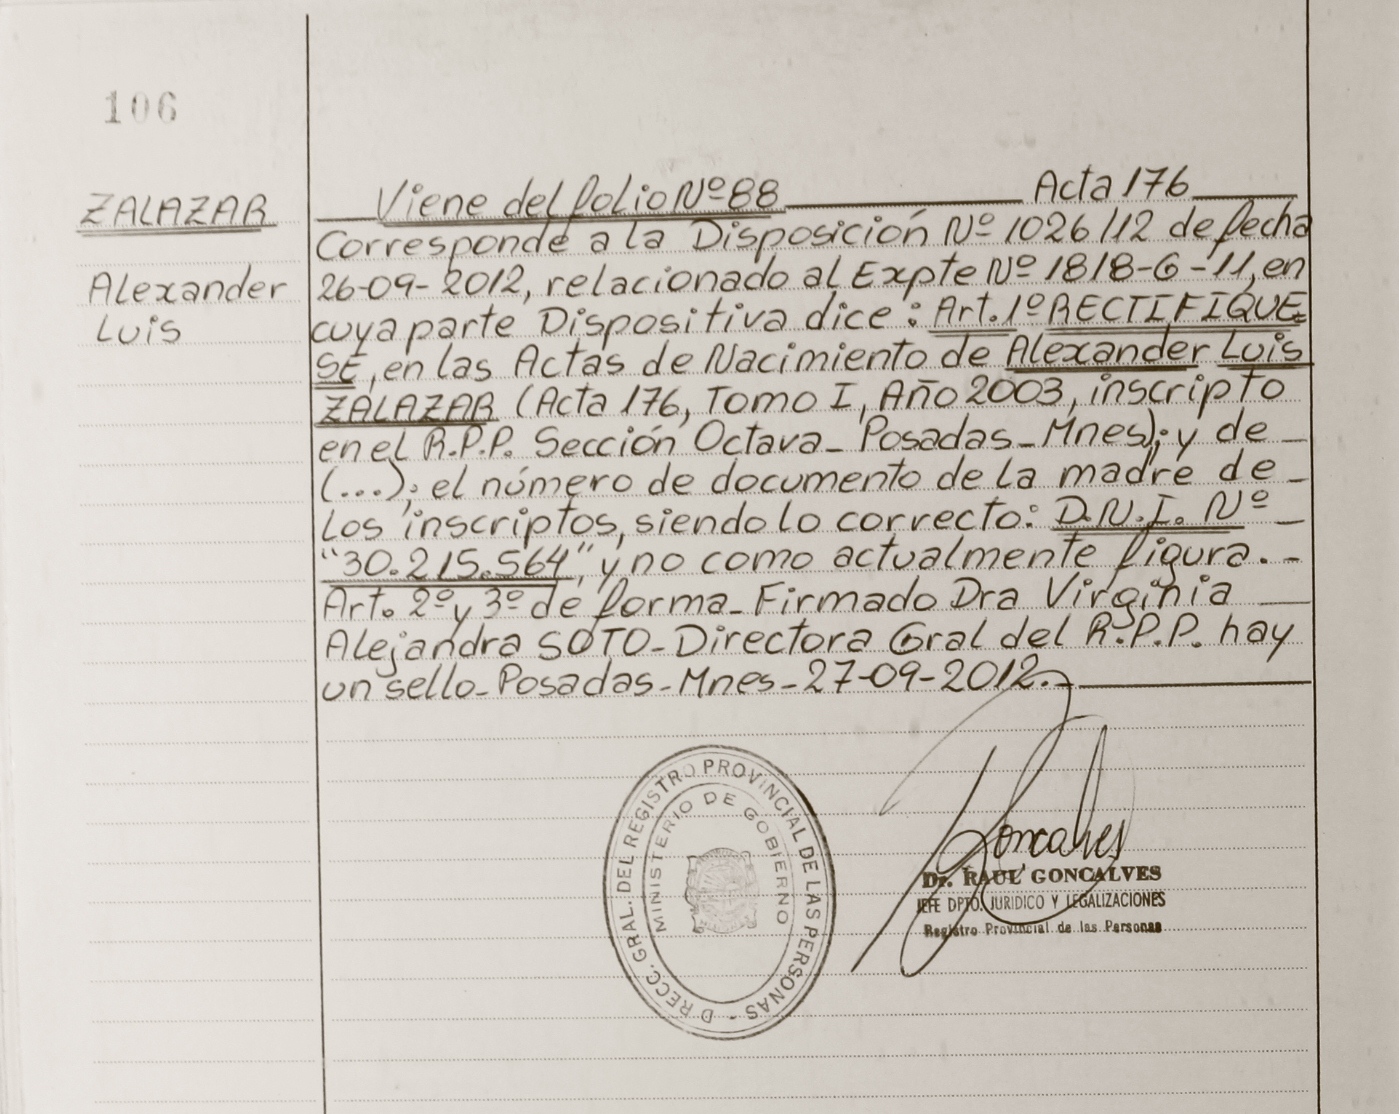 106
ZALAZAR
Alexander
Luis
Viene del folio Nº 88 Acta 176
Corresponde a la Disposición Nº 1026/12 de fecha
26-09-2012, relacionado al Expte Nº 1818-G-11, en
cuya parte Dispositiva dice: Art. 1º RECTIFIQUE
SE, en las Actas de Nacimiento de Alexander Luis
ZALAZAR (Acta 176, Tomo I, Año 2003, inscripto
en el R.P.P. Sección Octava - Posadas - Mnes); y de -
(...); el número de documento de la madre de -
los inscriptos, siendo lo correcto: D.N.I. Nº -
"30.215.564", y no como actualmente figura. -
Art. 2º y 3º de forma - Firmado Dra Virginia
Alejandra SOTO - Directora Gral del R.P.P. hay
un sello - Posadas - Mnes - 27-09-2012.-
DIRECC. GRAL. DEL REGISTRO PROVINCIAL DE LAS PERSONAS -
MINISTERIO DE GOBIERNO
Goncalves
Dr. RAUL GONCALVES
JEFE DPTO. JURIDICO Y LEGALIZACIONES
Registro Provincial de las Personas